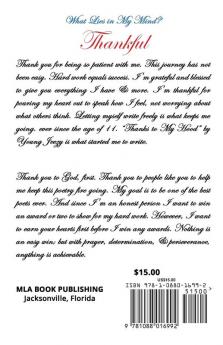 What Lies in My Mind?
Thankful
Thank you for being so patient with me. This journey has not
been easy. Hard work equals success. I'm grateful and blessed
to give you everything I have & more. I'm thankful for
pouring my heart out to speak how I feel, not worrying about
what others think. Letting myself write freely is what keeps me
going, ever since the age of 11. "Thanks to My Hood" by
Young Jeezy is what started me to write.
Thank you to God, first. Thank you to people like you to help
me keep this poetry fire going. My goal is to be one of the best
poets ever. And since I'm an honest person I want to win
an award or two to show for my hard work. However, I want
to earn your hearts first before I win any awards. Nothing is
an easy win; but with prayer, determination, & perseverance,
anything is achievable.
$15.00
MLA BOOK PUBLISHING
Jacksonville, Florida
ISBN 978-1-0880-1699-2
9 781088 016992